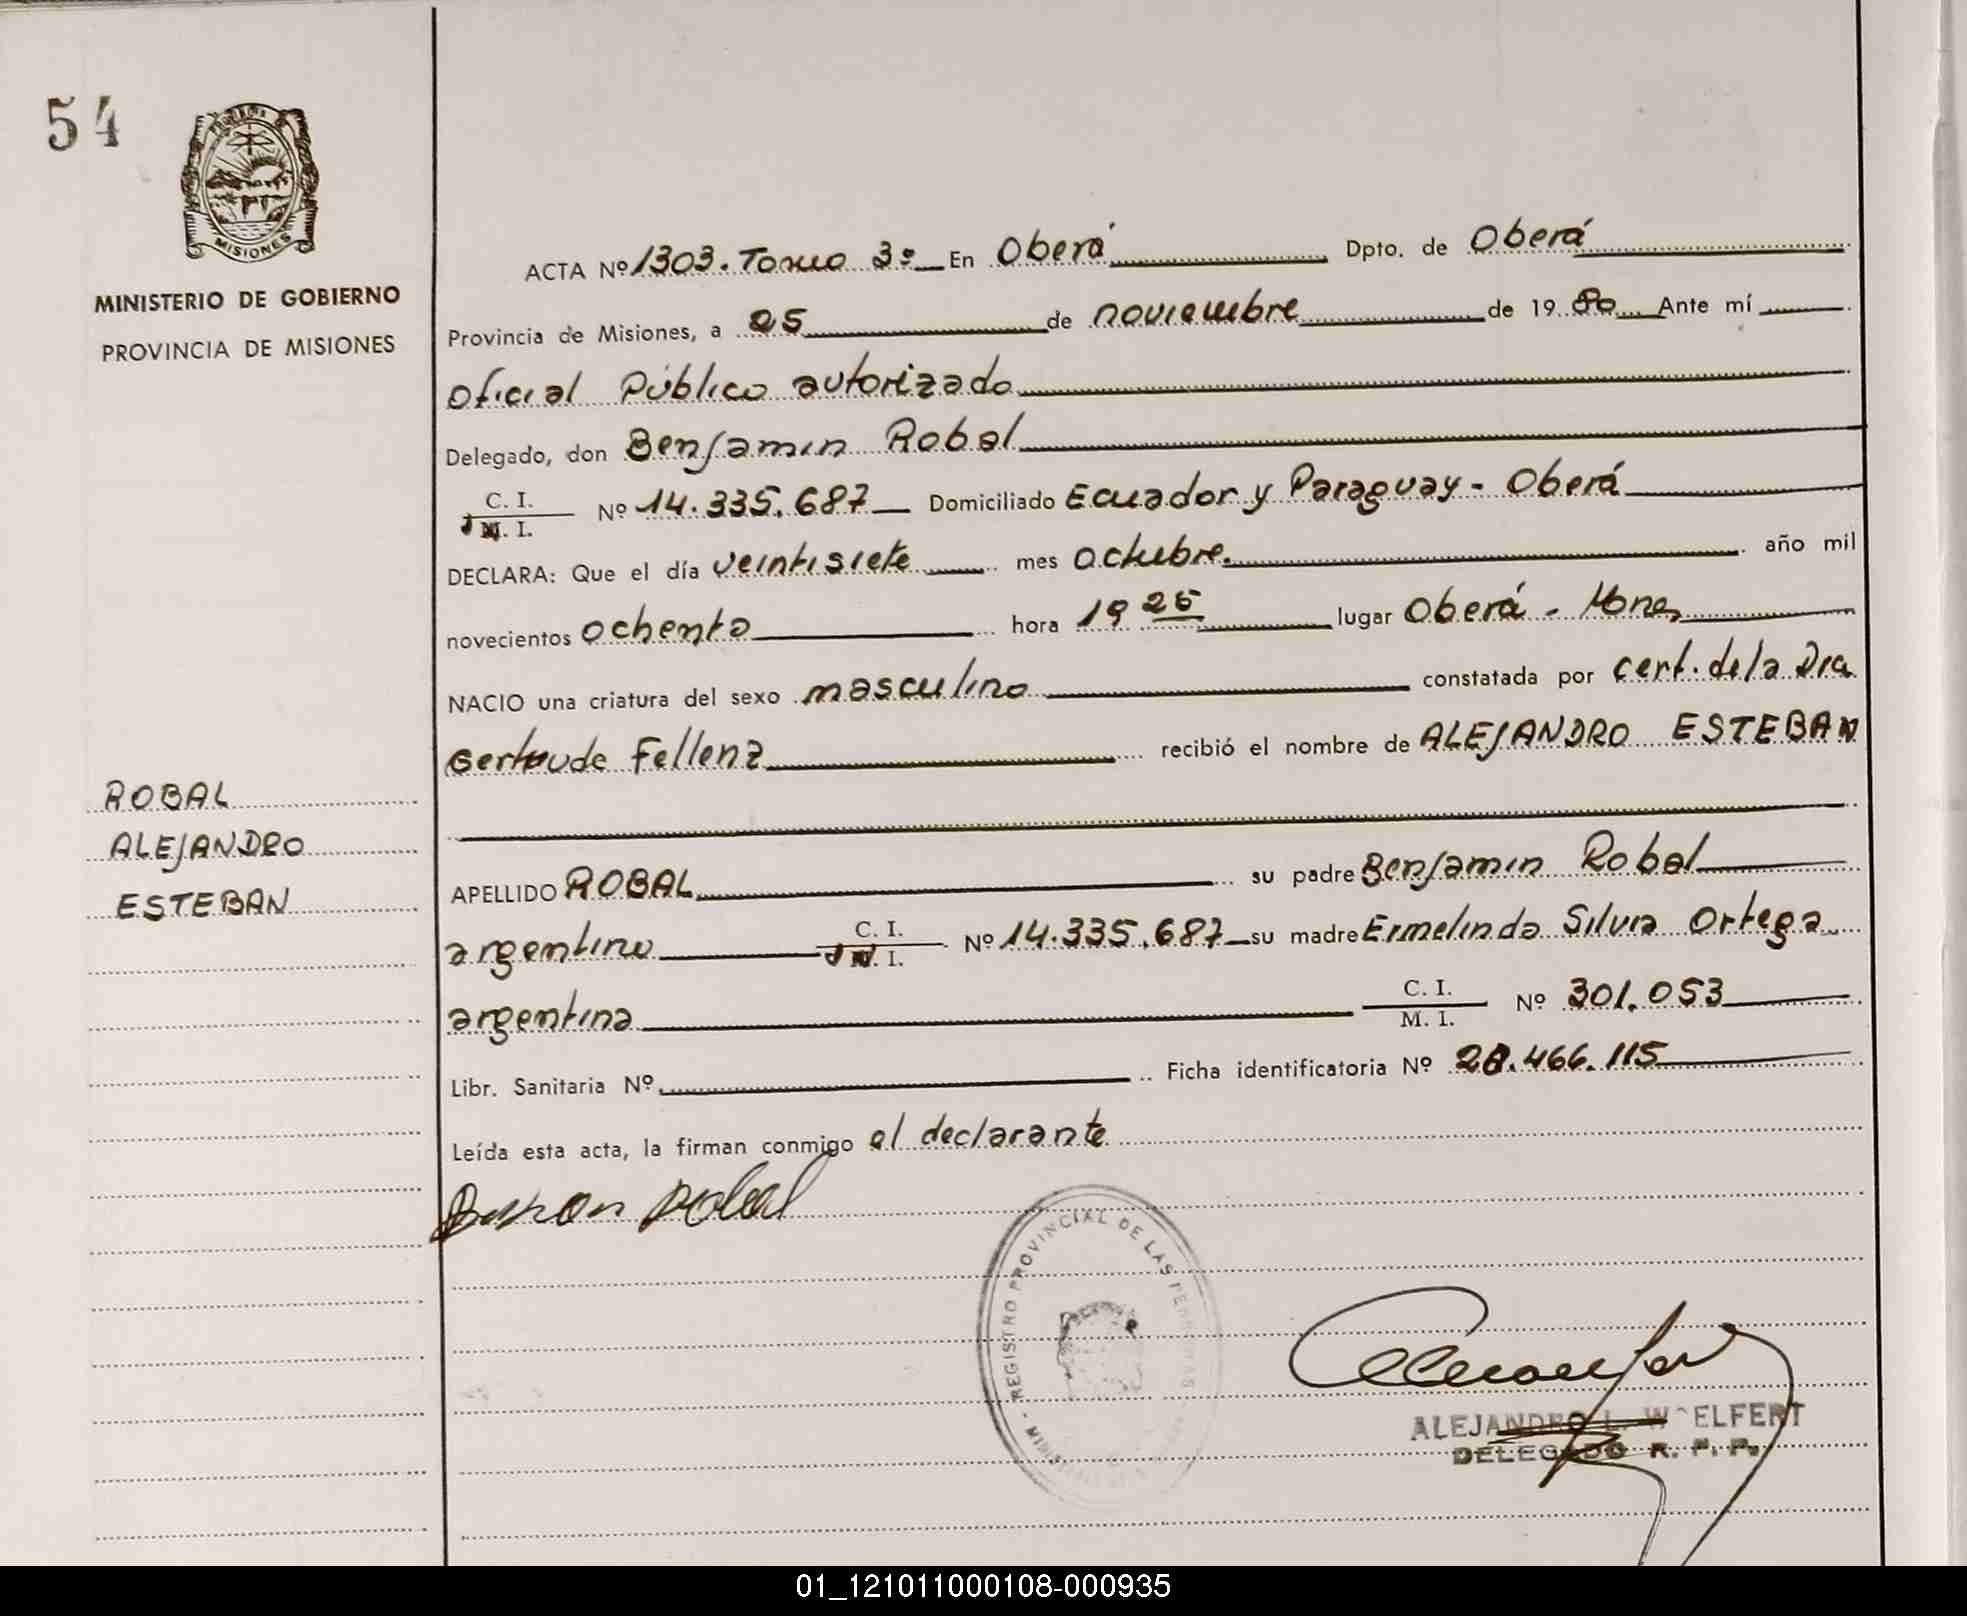 54
MISIONES
MINISTERIO DE GOBIERNO
PROVINCIA DE MISIONES
ROBAL
ALEJANDRO
ESTEBAN
ACTA Nº 1303. Tomo 3º En Oberá Dpto. de Oberá
Provincia de Misiones, a 25 de noviembre de 19 80 Ante mí
Oficial Público autorizado
Delegado, don Benjamin Robal
C. I.
M. I. Nº 14.335.687 Domiciliado Ecuador y Paraguay - Oberá
DECLARA: Que el día veintisiete mes octubre. año mil
novecientos ochenta hora 19 25 lugar Oberá - Mnes
NACIO una criatura del sexo masculino constatada por cert. de la Dra
Gertrude Fellenz recibió el nombre de ALEJANDRO ESTEBAN
APELLIDO ROBAL su padre Benjamin Robal
argentino C. I. Nº 14.335.687 su madre Ermelinda Silvia Ortega
argentina C. I. M. I. Nº 301.053
Libr. Sanitaria Nº Ficha identificatoria Nº 28.466.115
Leída esta acta, la firman conmigo el declarante
REGISTRO PROVINCIAL DE LAS
ALEJANDRO L. WOELFERT
DELEGADO R. P. P.
01_121011000108-000935